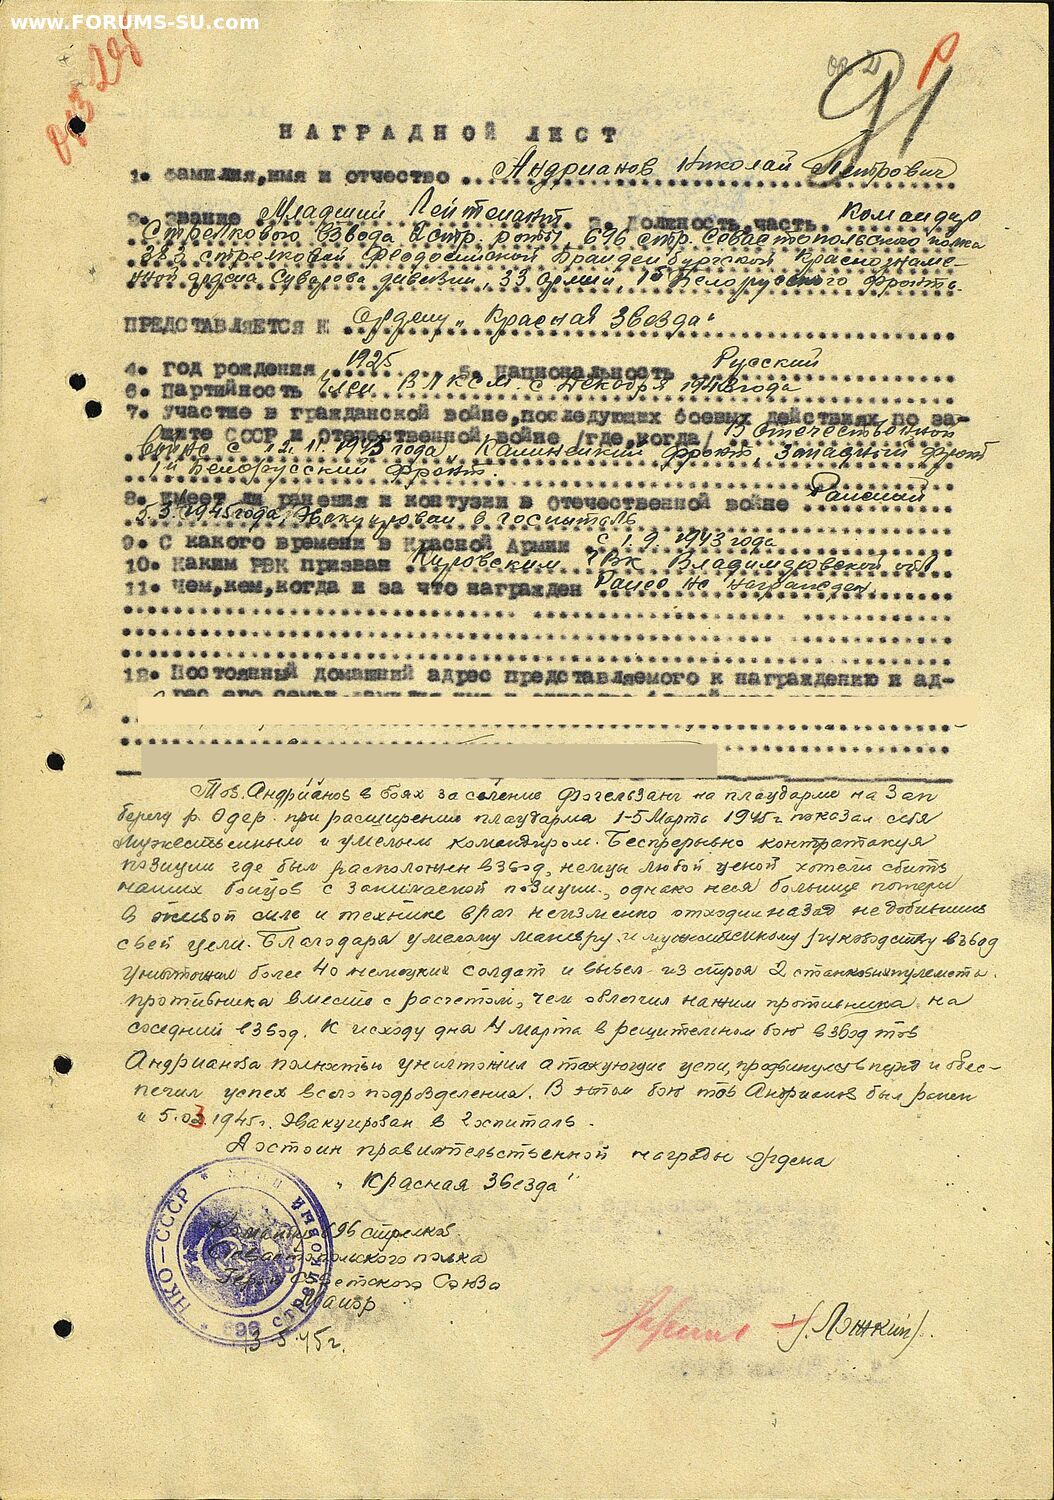 www.FORUMS-SU.com
НАГРАДНОЙ ЛИСТ
1. Фамилия, имя и отчество Андрианов Николай Петрович
2. Звание Младший Лейтенант 3. Должность, часть Командир
Стрелкового взвода стр. роты, 696 стр. Севастопольского полка
383 стрелковой Феодосийской Бранденбургской Краснознаме-
нной ордена Суворова дивизии, 33 Армии, 1 Белорусского Фронта.
ПРЕДСТАВЛЯЕТСЯ К Ордену „Красная Звезда"
4. Год рождения 1925 5. Национальность Русский
6. Партийность Член ВЛКСМ с Декабря 1943 года
7. Участие в гражданской войне, последующих боевых действиях по за-
щите СССР и отечественной войне /где, когда/ В Отечественной
войне с 12.11.1943 года, Калининский фронт, Западный фронт
1й Белорусский Фронт.
8. Имеет ли ранения и контузии в отечественной войне Раненый
5.3.1945 года, Эвакуирован в госпиталь
9. С какого времени в Красной Армии с 1.9.1943 года
10. Каким РВК призван Кировским РВК Владимировской обл
11. Чем, кем, когда и за что награжден Ранее не награжден.
12. Постоянный домашний адрес представляемого к награждению и ад-
рес его семьи
Тов. Андрианов в боях за селение Фогельзанг на плацдарме на Зап
берегу р. Одер при расширении плацдарма 1-5 Марта 1945г показал себя
Мужественным и умелым командиром. Беспрерывно контратакуя
позиции где был расположен взвод, немцы любой ценой хотели сбить
наших бойцов с занимаемой позиции, однако неся большие потери
в живой силе и технике враг неизменно отходил назад не добившись
своей цели. Благодаря умелому маневру и мужественному руководству взвод
уничтожил более 40 немецких солдат и вывел из строя 2 станковых пулемета
противника вместе с расчетом, чем облегчил нажим противника на
соседний взвод. К исходу дня 4 марта в решительном бою взвод тов
Андрианова полностью уничтожил атакующие цепи, продвинулся вперед и обес-
печил успех всего подразделения. В этом бою тов Андрианов был ранен
и 5.03.1945г. Эвакуирован в госпиталь.
Достоин правительственной награды ордена
„Красная Звезда"
НКО-СССР
696 стрелковый
Командир 696 стрелков.
Севастопольского полка
Герой Советского Союза
Майор
/Лэжкин/.
13 5 45г.